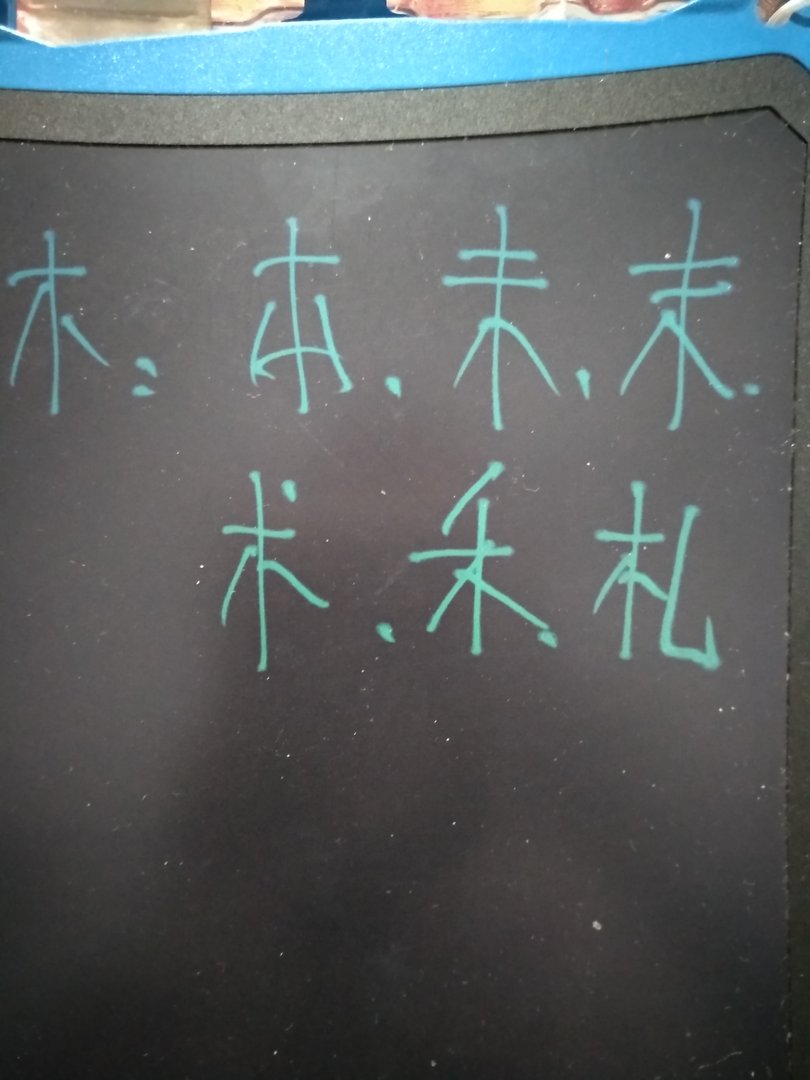 木：本、未、末、
术、禾、札